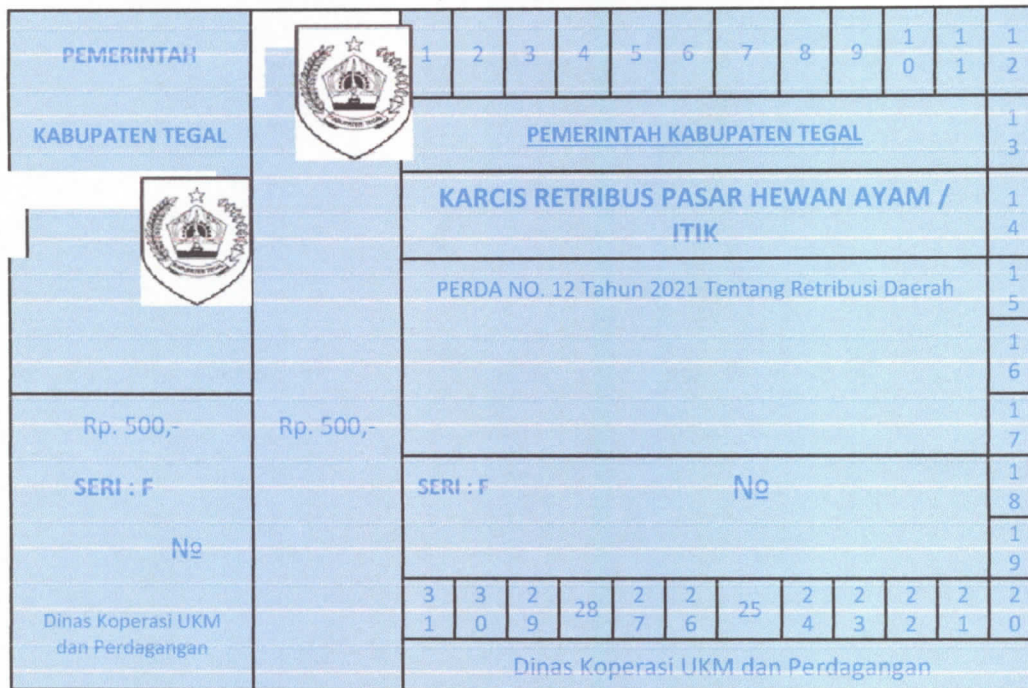 PEMERINTAH
KABUPATEN TEGAL
KABUPATEN TEGAL
Rp. 500,-
SERI : F
Nº
Dinas Koperasi UKM
dan Perdagangan
KABUPATEN TEGAL
Rp. 500,-
1 2 3 4 5 6 7 8 9 10 11 12
PEMERINTAH KABUPATEN TEGAL
13
KARCIS RETRIBUS PASAR HEWAN AYAM /
ITIK
14
PERDA NO. 12 Tahun 2021 Tentang Retribusi Daerah
15
16
17
SERI : F Nº
18
19
31 30 29 28 27 26 25 24 23 22 21 20
Dinas Koperasi UKM dan Perdagangan